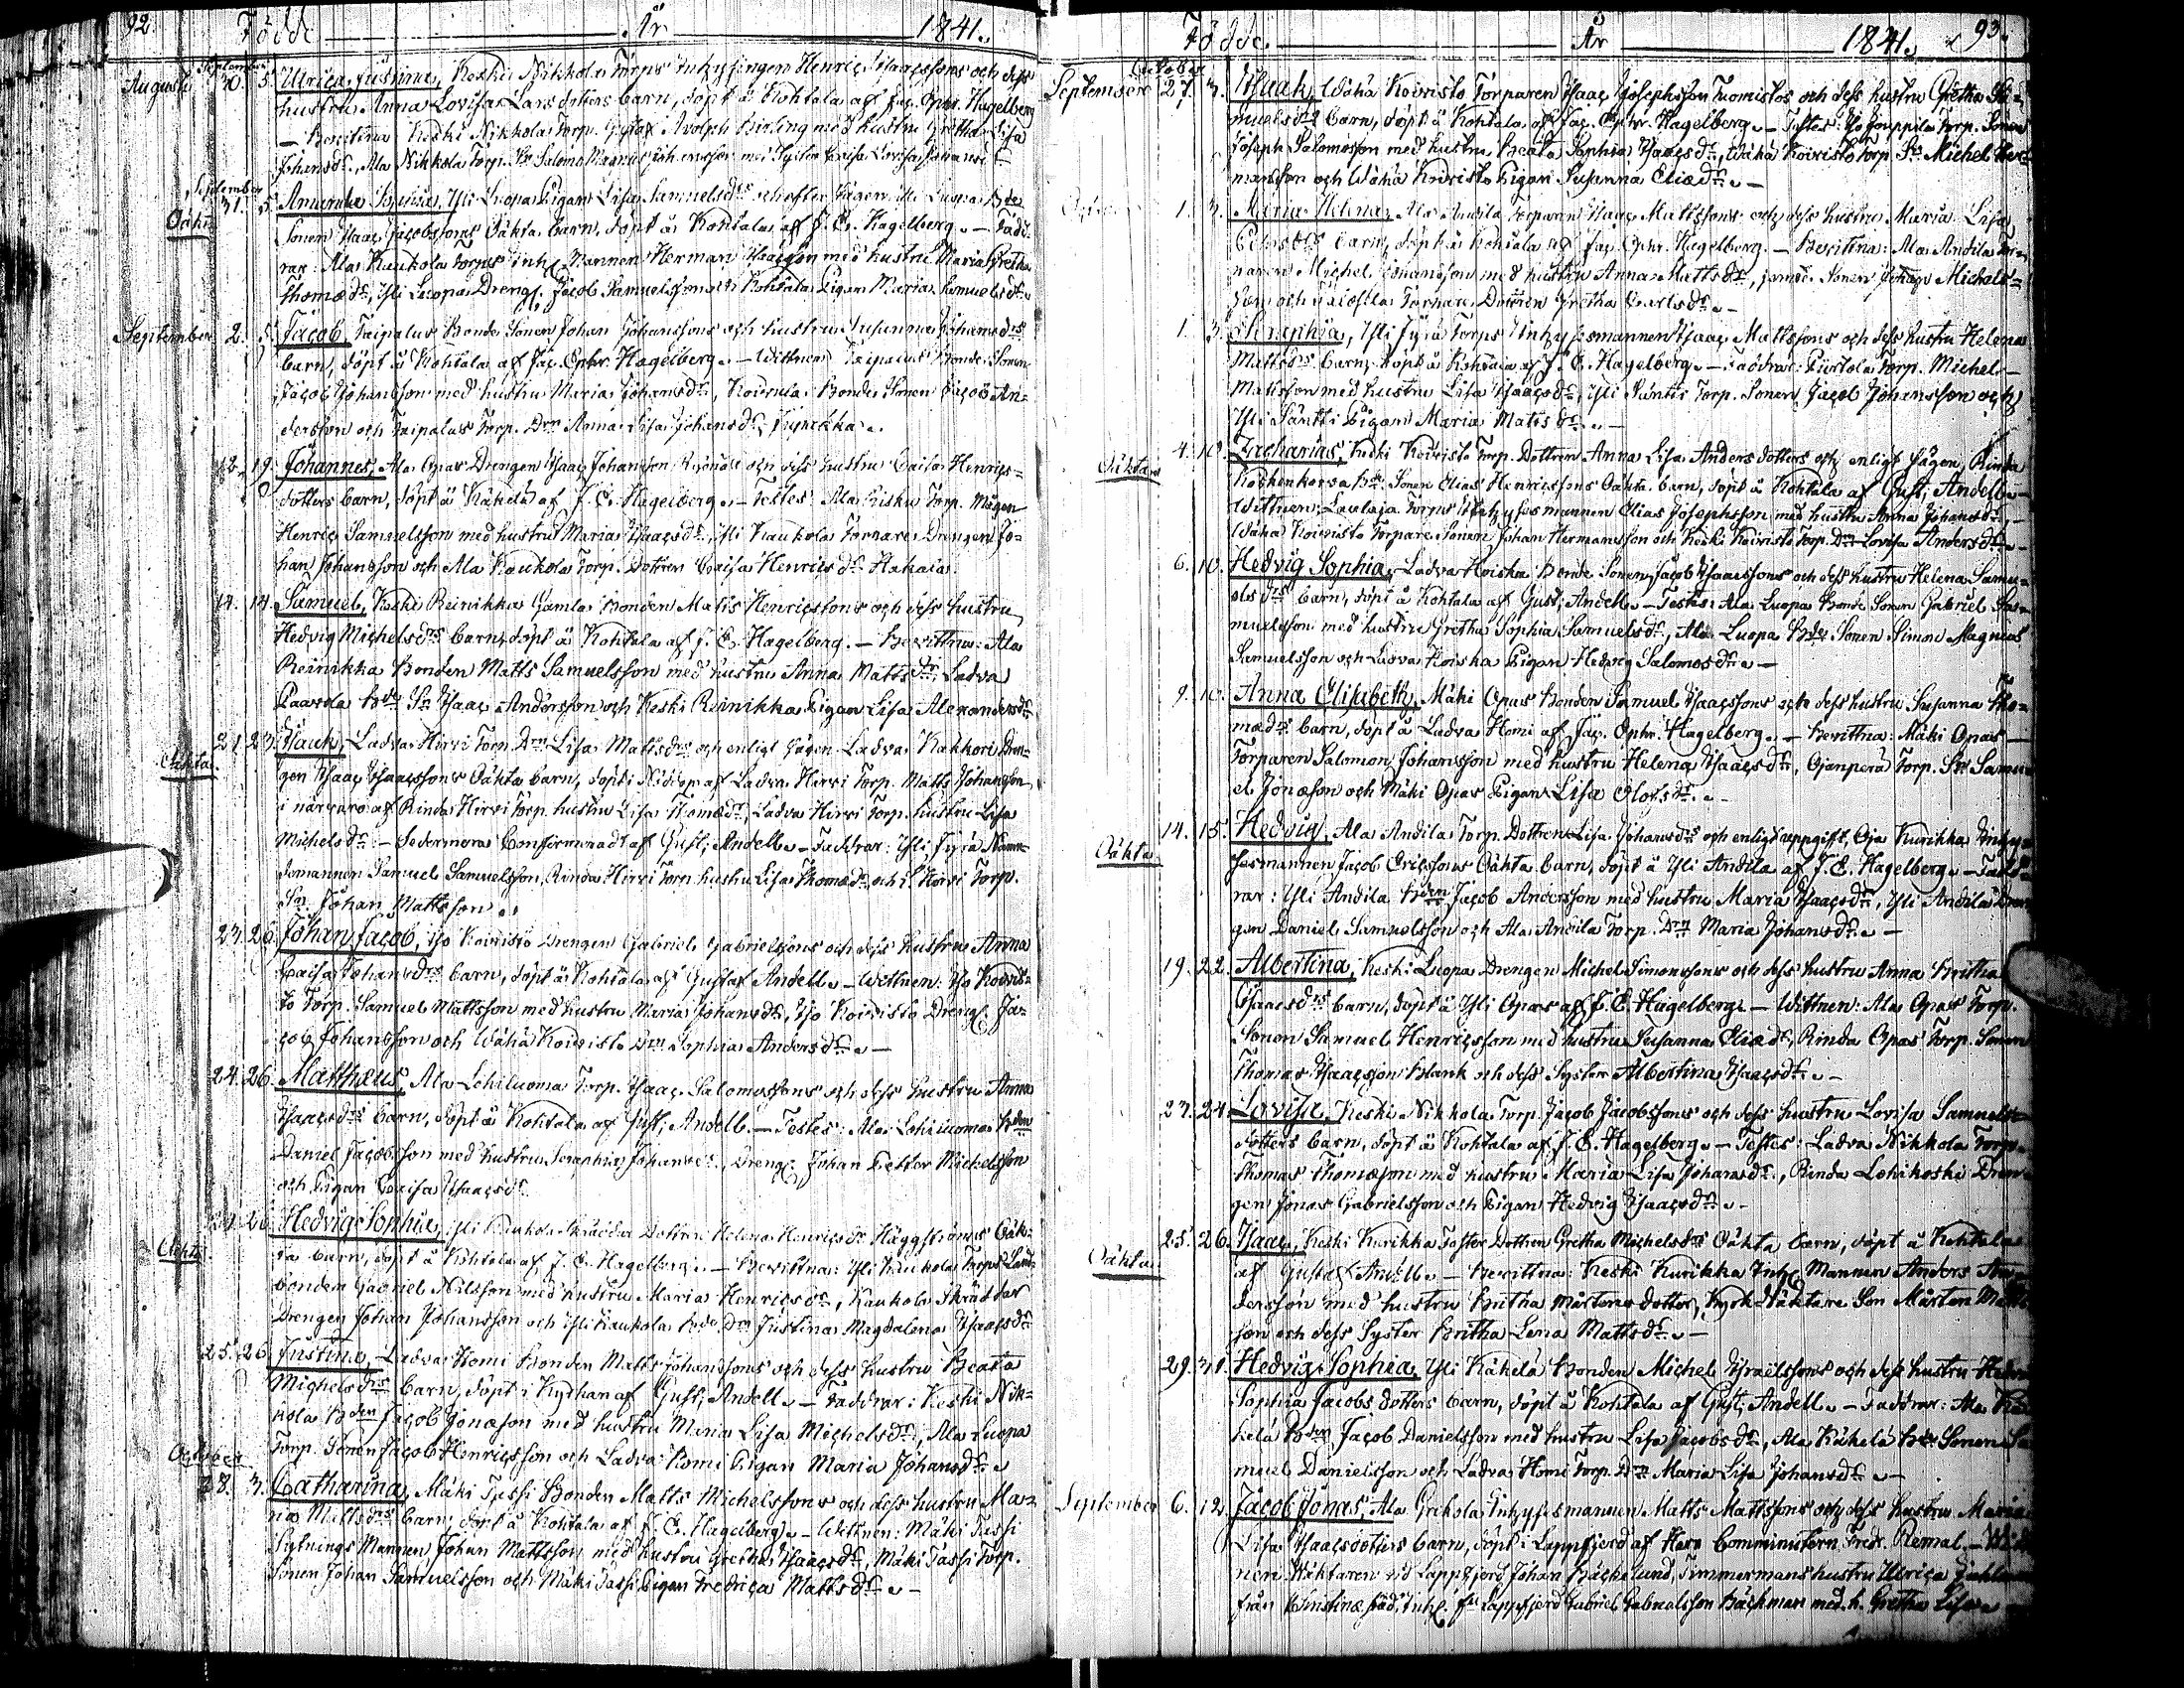 92. Födde År 1841.
Augusti September 30. 5. Ulrica Justina, Keski Nikkola Torps Inhysingen Henric Isaacssons och dess
hustru Anna Lovisa Larsdotters barn, döpt å Kohtala af Jac. Ephr. Hagelberg
– Bevittna: Keski Nikkola Torp. Gustaf Adolph med hustru Gretha Lisa
Johansdr, Ala Nikkola Torp. Sn Salomo Magnus Johansson med Syster Lovisa Johansdr
September 31. 5. Amanda Sophia, Yli Luopa Pigan Lisa Samuelsdrs och efter sägen Yli Luopa Bde
Oäkta Sonen Isaac Jacobssons Oäkta barn, döpt å Kohtala af J. E. Hagelberg. – Fadd-
rar: Ala Kaukola Torps Inh. Mannen Herman Isacson med hustru Maria Gretha
Thomædr, Yli Luopa Dreng. Jacob Samuelsson och Kohtala Pigan Maria Samuelsdr.
September 2. 5. Jacob, Taipalus Bonde Sonen Johan Johanssons och hustru Susanna Johansdrs
barn, döpt å Kohtala af Jac. Ephr. Hagelberg. – Wittnen: Taipalus Bonde Sonen
Jacob Johansson med hustru Maria Johansdr, Koivula Bonde Sonen Jacob An-
dersson och Taipalus Torp. Drn Anna Lisa Johansdr
12. 19. Johannes, Ala Opas Drengen Isaac Johansson och dess hustru Caisa Henrics-
dotters barn, döpt å Käkelä af J. E. Hagelberg. – Testes: Ala Torp. Mågen
Henric Samuelsson med hustru Maria Isaacsdr, Yli Kaukola Torpare Drengen Jo-
han Johansson och Ala Kaukola Torp. Dottren Caisa Henricsdr Hakala.
14. 14. Samuel, Keski Reinikka Gamla Bonden Matts Henricssons och dess hustru
Hedvig Michelsdrs barn, döpt å Kohtala af J. E. Hagelberg. – Bevittna: Ala
Reinikka Bonden Matts Samuelsson med hustru Anna Mattsdr, Ladva
Paavola Bde Sn Isaac Andersson och Keski Reinikka Pigan Lisa Alexandersdr
21. 23. Isaak, Ladva Hirvi Torp. Drn Lisa Mattsdrs och enligt sägen Ladva Kakkori Dren-
Oäkta. gen Isaac Isaacssons Oäkta barn, döpt i Nöddop af Ladva Hirvi Torp. Matts Johansson
i närvaro af Rinda Hirvi Torp. hustru Lisa Thomædr, Ladva Hirvi Torp. hustru Lisa
Michelsdr. – Sedermera Confirmeradt af Gust; Andell. – Faddrar: Yli Fyrä Nämn-
demannen Samuel Samuelsson, Rinda Hirvi Torp. hustru Lisa Thomædr och L Hirvi Torp.
Sn. Johan Mattsson.
23. 26. Johan Jacob, Iso Koivisto Drengen Gabriel Gabrielssons och dess hustru Anna
Caisa Johansdrs barn, döpt å Kohtala af Gustaf Andell. – Wittnen: Iso Koivis-
to Torp. Samuel Mattsson med hustru Maria Johansdr, Iso Koivisto Dreng. Ja-
cob Johansson och Wähä Koivisto Drn Sophia Andersdr. –
24. 26. Matthæus, Ala Lehiluoma Torp. Isaac Salomossons och dess hustru Anna
Isaacsdrs barn, döpt å Kohtala af Gust; Andell. – Testes: Ala Lehiluoma Bden
Daniel Jacobsson med hustru Seraphia Johansdr, Dreng. Johan Petter Michelsson
och Pigan Caisa Isaacsdr
24. 26. Hedvig Sophia, Yli Kaukola Skräddar Dottren Helena Henricsdr Häggströms Oäk-
Oäkta ta barn, döpt å Kohtala af J. E. Hagelberg. – Bevittna: Yli Kaukola Torps Land-
bonden Gabriel Nilsson med hustru Maria Henricsdr, Kaukola Skräddar
Drengen Johan Johansson och Yli Kaukola Bde Drn Justina Magdalena Isaacsdr
25. 26. Justina, Ladva Homi Bonden Matts Johanssons och dess hustru Beata
Michelsdrs barn, döpt i Kyrkan af Gust; Andell. – Faddrar: Keski Nik-
kola Bden Jacob Jonæson med hustru Maria Lisa Michelsdr, Ala Luopa
Torp. Sonen Jacob Henricsson och Ladva Homi Pigan Maria Johansdr.
October 28. 3. Catharina, Mäki Tassi Bonden Matts Michelssons och dess hustru Ma-
ria Mattsdrs barn, döpt å Kohtala af J. E. Hagelberg. – Wittnen: Mäki Tassi
Sytnings Mannen Johan Mattsson med hustru Gretha Isaacsdr, Mäki Tassi Torp.
Sonen Johan Samuelsson och Mäki Tassi Pigan Fredrica Mattsdr. –
Födde. År 1841. 93.
September October 27. 3. Isaak, Wähä Koivisto Torparen Isaac Josephsson Tuomistos och dess hustru Gretha Sa-
muelsdrs barn, döpt å Kohtala af Jac. Ephr. Hagelberg. – Testes: Iso Jouppila Torp. Sonen
Joseph Salomosson med hustru Beata Sophia Isaacsdr, Wähä Koivisto Torp. Sn Michel Her-
mansson och Wähä Koivisto Pigan Susanna Eliædr. –
October 1. 3. Maria Helena, Ala Andila Torparen Isaac Mattssons och dess hustru Maria Lisa
barn, döpt å Kohtala af Jac. Ephr. Hagelberg. – Bevittna: Ala Andila Tor-
paren Michel Johansson med hustru Anna Mattsdr, samt Sonen Johan Michels-
son och Torpare Dottren Gretha Carlsdr. –
1. 3. Seraphia, Yli Fyrä Torps Inhysesmannen Isaac Mattssons och dess hustru Helena
Mattsdrs barn, döpt å Kohtala af J. E. Hagelberg. – Faddrar: Torp. Michel
Mattsson med hustru Lisa Isaacsdr, Yli Säntti Torp. Sonen Jacob Johansson och
Yli Säntti Pigan Maria Mattsdr. –
Oäkta 4. 10. Zacharias, Keski Koivisto Torp. Dottren Anna Lisa Andersdotters och enligt sägen Rinda
Koskenkorva Bde Sonen Elias Henricssons Oäkta barn, döpt å Kohtala af Gust; Andell. –
Wittnen: Laulaja Torps Inhysesmannen Elias Josephsson med hustru Anna Johansdr, –
Wähä Koivisto Torpare Sonen Johan Hermansson och Keski Koivisto Torp. Drn Lovisa Andersdr. –
6. 10. Hedvig Sophia, Ladva Koiska Bonde Sonen Jacob Isaacssons och dess hustru Helena Samu-
elsdrs barn, döpt å Kohtala af Gust; Andell. – Testes: Ala Luopa Bonde Sonen Gabriel Sa-
muelsson med hustru Gretha Sophia Samuelsdr, Ala Luopa Bde Sonen Simon Magnus
Samuelsson och Ladva Koiska Pigan Hedvig Salomosdr. –
9. 10. Anna Elisabeth, Mäki Opas Bonden Samuel Isaacssons och dess hustru Susanna Tho-
mædrs barn, döpt å Ladva Homi af Jac. Ephr. Hagelberg. – Bevittna: Mäki Opas
Torparen Salomon Johansson med hustru Helena Isaacsdr, Ojanperä Torp. Sn Samu-
el Jonæson och Mäki Opas Pigan Lisa Olofsdr. –
14. 15. Hedvig, Ala Andila Torp. Dottren Lisa Johansdrs och enligt uppgift, Oja Kurikka Inhy-
Oäkta sesmannen Jacob Ericssons Oäkta barn, döpt å Yli Andila af J. E. Hagelberg. – Fadd-
rar: Yli Andila Bden Jacob Andersson med hustru Maria Isaacsdr, Yli Andila Dren-
gen Daniel Samuelsson och Ala Andila Torp. Drn Maria Johansdr. –
19. 22. Albertina, Keski Luopa Drengen Michel Simonssons och dess hustru Anna Britha
Isaacsdrs barn, döpt å Yli Opas af J. E. Hagelberg. – Wittnen: Ala Opas Torp.
Sonen Samuel Henricsson med hustru Susanna Eliædr, Rinda Opas Torp. Sonen
Thomas Isaacsson Blank och dess Syster Albertina Isaacsdr. –
23. 24. Lovisa, Keski Nikkola Torp. Jacob Jacobssons och dess hustru Lovisa Samuels-
dotters barn, döpt å Kohtala af J. E. Hagelberg. – Testes: Ladva Nikkola Torp.
Thomas Thomæson med hustru Maria Lisa Johansdr, Rinda Lohikoski Dren-
gen Jonas Gabrielsson och Pigan Hedvig Isaacsdr. –
25. 26. Isaac, Keski Kurikka Foster Dottren Gretha Michelsdrs Oäkta barn, döpt å Kohtala
Oäkta af Gustaf Andell. – Bevittna: Keski Kurikka Inh. Mannen Anders An-
dersson med hustru Britha Mårtens dotter, Kyrk Wäktare Son Mårten Matts-
son och dess Syster Britha Lena Mattsdr. –
29. 31. Hedvig Sophia, Yli Käkelä Bonden Michel Israelssons och dess hustru
Sophia Jacobsdotters barn, döpt å Kohtala af Gust; Andell. – Faddrar: Ala Kä-
kelä Bden Jacob Danielsson med hustru Lisa Jacobsdr, Ala Käkelä Bde Sonen Sa-
muel Danielsson och Ladva Homi Torp. Drn Maria Lisa Johansdr. –
September 6. 12. Jacob Jonas, Ala Grekola Inhysesmannen Matts Mattssons och dess hustru Maria
Lisa Isaacsdotters barn, döpt i Lappfjerd af Herr Comministern Fredr. Remal. – Witt-
nen: Wäktaren vid Lappfjerd Johan Bäcklund, Timmermans hustru Ulrica
från Christinæ stad, Inh. fr Lappfjerd Gabriel Gabrielsson Bäckman med h. Gretha Lisa.